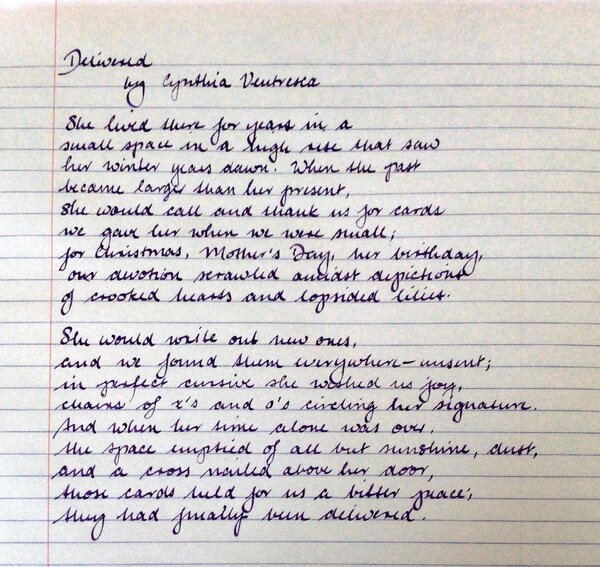 Delivered
by Cynthia Ventresca
She lived there for years in a
small space in a high rise that saw
her winter years dawn. When the past
became larger than her present,
she would call and thank us for cards
we gave her when we were small;
for Christmas, Mother's Day, her birthday,
our devotion scrawled amidst depictions
of crooked hearts and lopsided lilies.
She would write out new ones,
and we found them everywhere—unsent;
in perfect cursive she wished us joy,
chains of x's and o's circling her signature.
And when her time alone was over,
the space emptied of all but sunshine, dust,
and a cross nailed above her door,
those cards held for us a bitter peace;
they had finally been delivered.